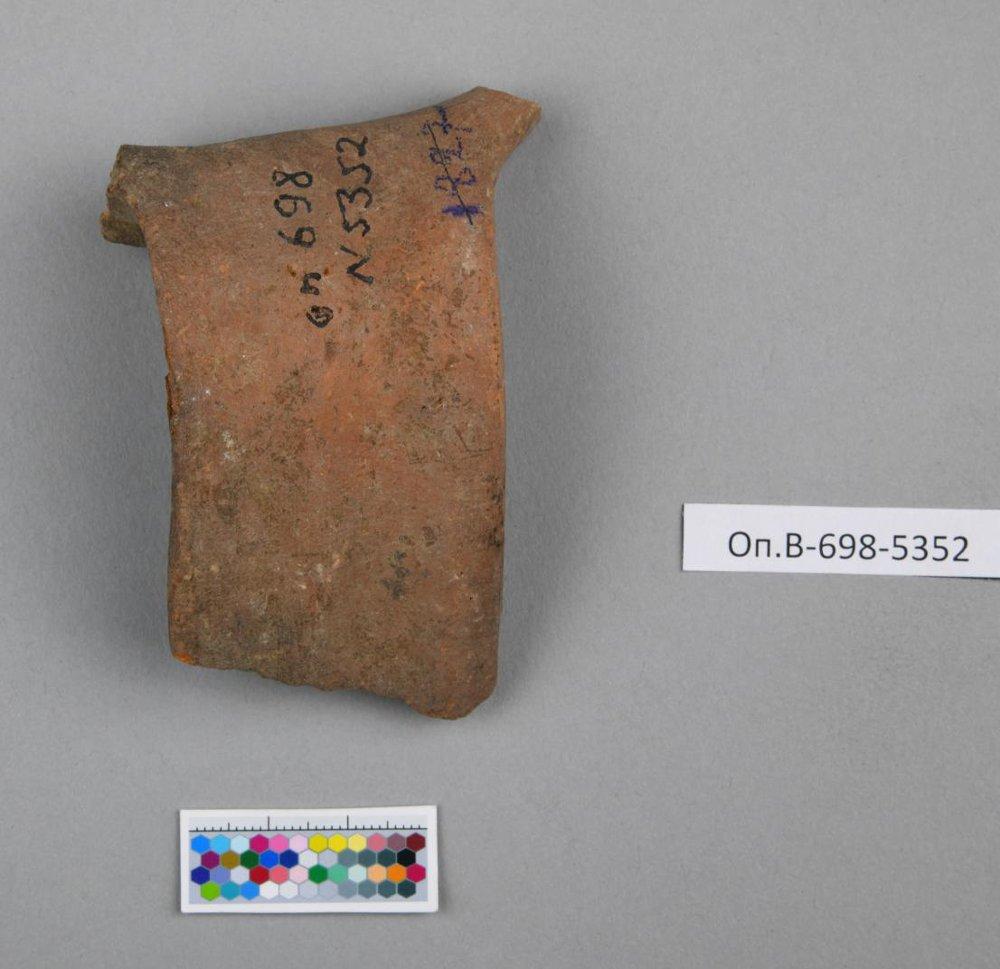 оп 698
N 5352
Оп.В-698-5352